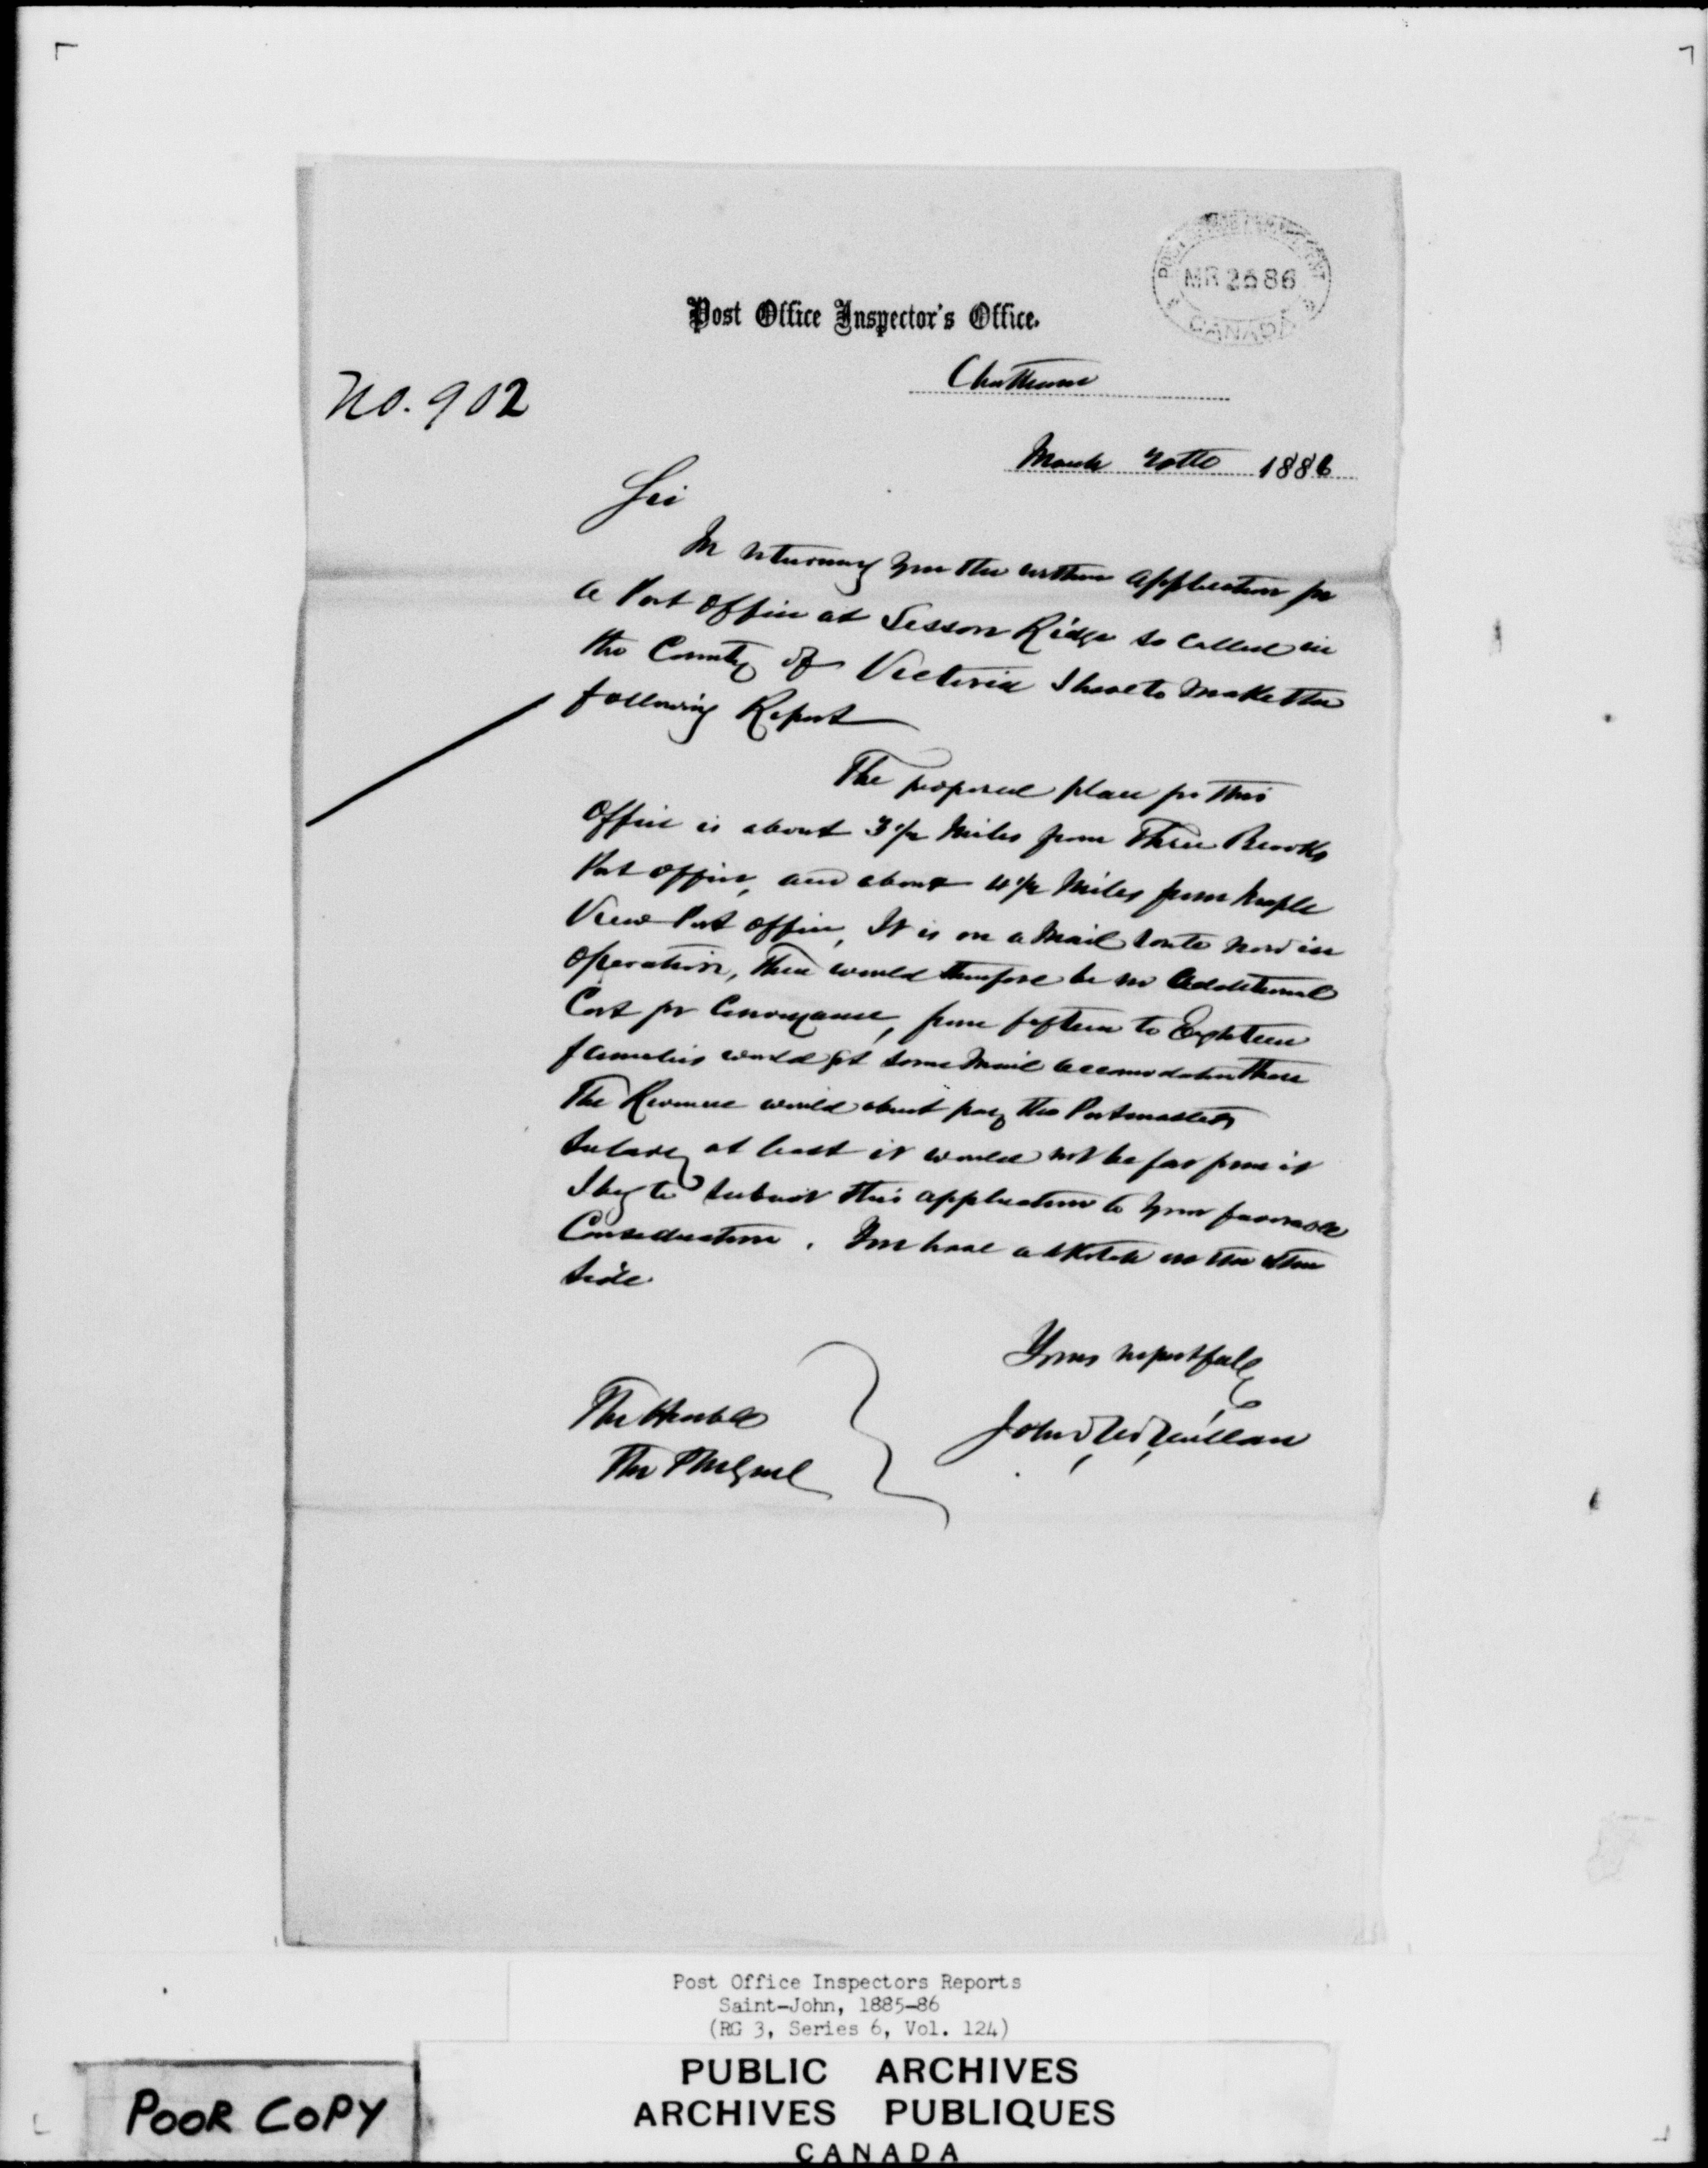 POST OFFICE DEPARTMENT
MR 26 86
CANADA
Post Office Inspector's Office.
Chatham
No. 902
March 20th 1886
Sir
In returning you the within application for
a Post Office at Sisson Ridge so called in
the County of Victoria I have to make the
following Report
The proposed place for this
Office is about 3 1/2 Miles from Three Brooks
Post Office, and about 4 1/2 Miles from Maple
View Post Office, It is on a Mail route now in
Operation, There would therefore be no Additional
Cost for Conveyance, from fifteen to Eighteen
families would get some Mail accomodation there
The Revenue would about pay the Postmasters
Salary at least it would not be far from it
I beg to submit this application to your favorable
Consideration. You have a sketch on the other
side
Yours respectfully
John McMillan
The Honble
The P M Genl
Post Office Inspectors Reports
Saint-John, 1885-86
(RG 3, Series 6, Vol. 124)
PUBLIC ARCHIVES
ARCHIVES PUBLIQUES
CANADA
POOR COPY